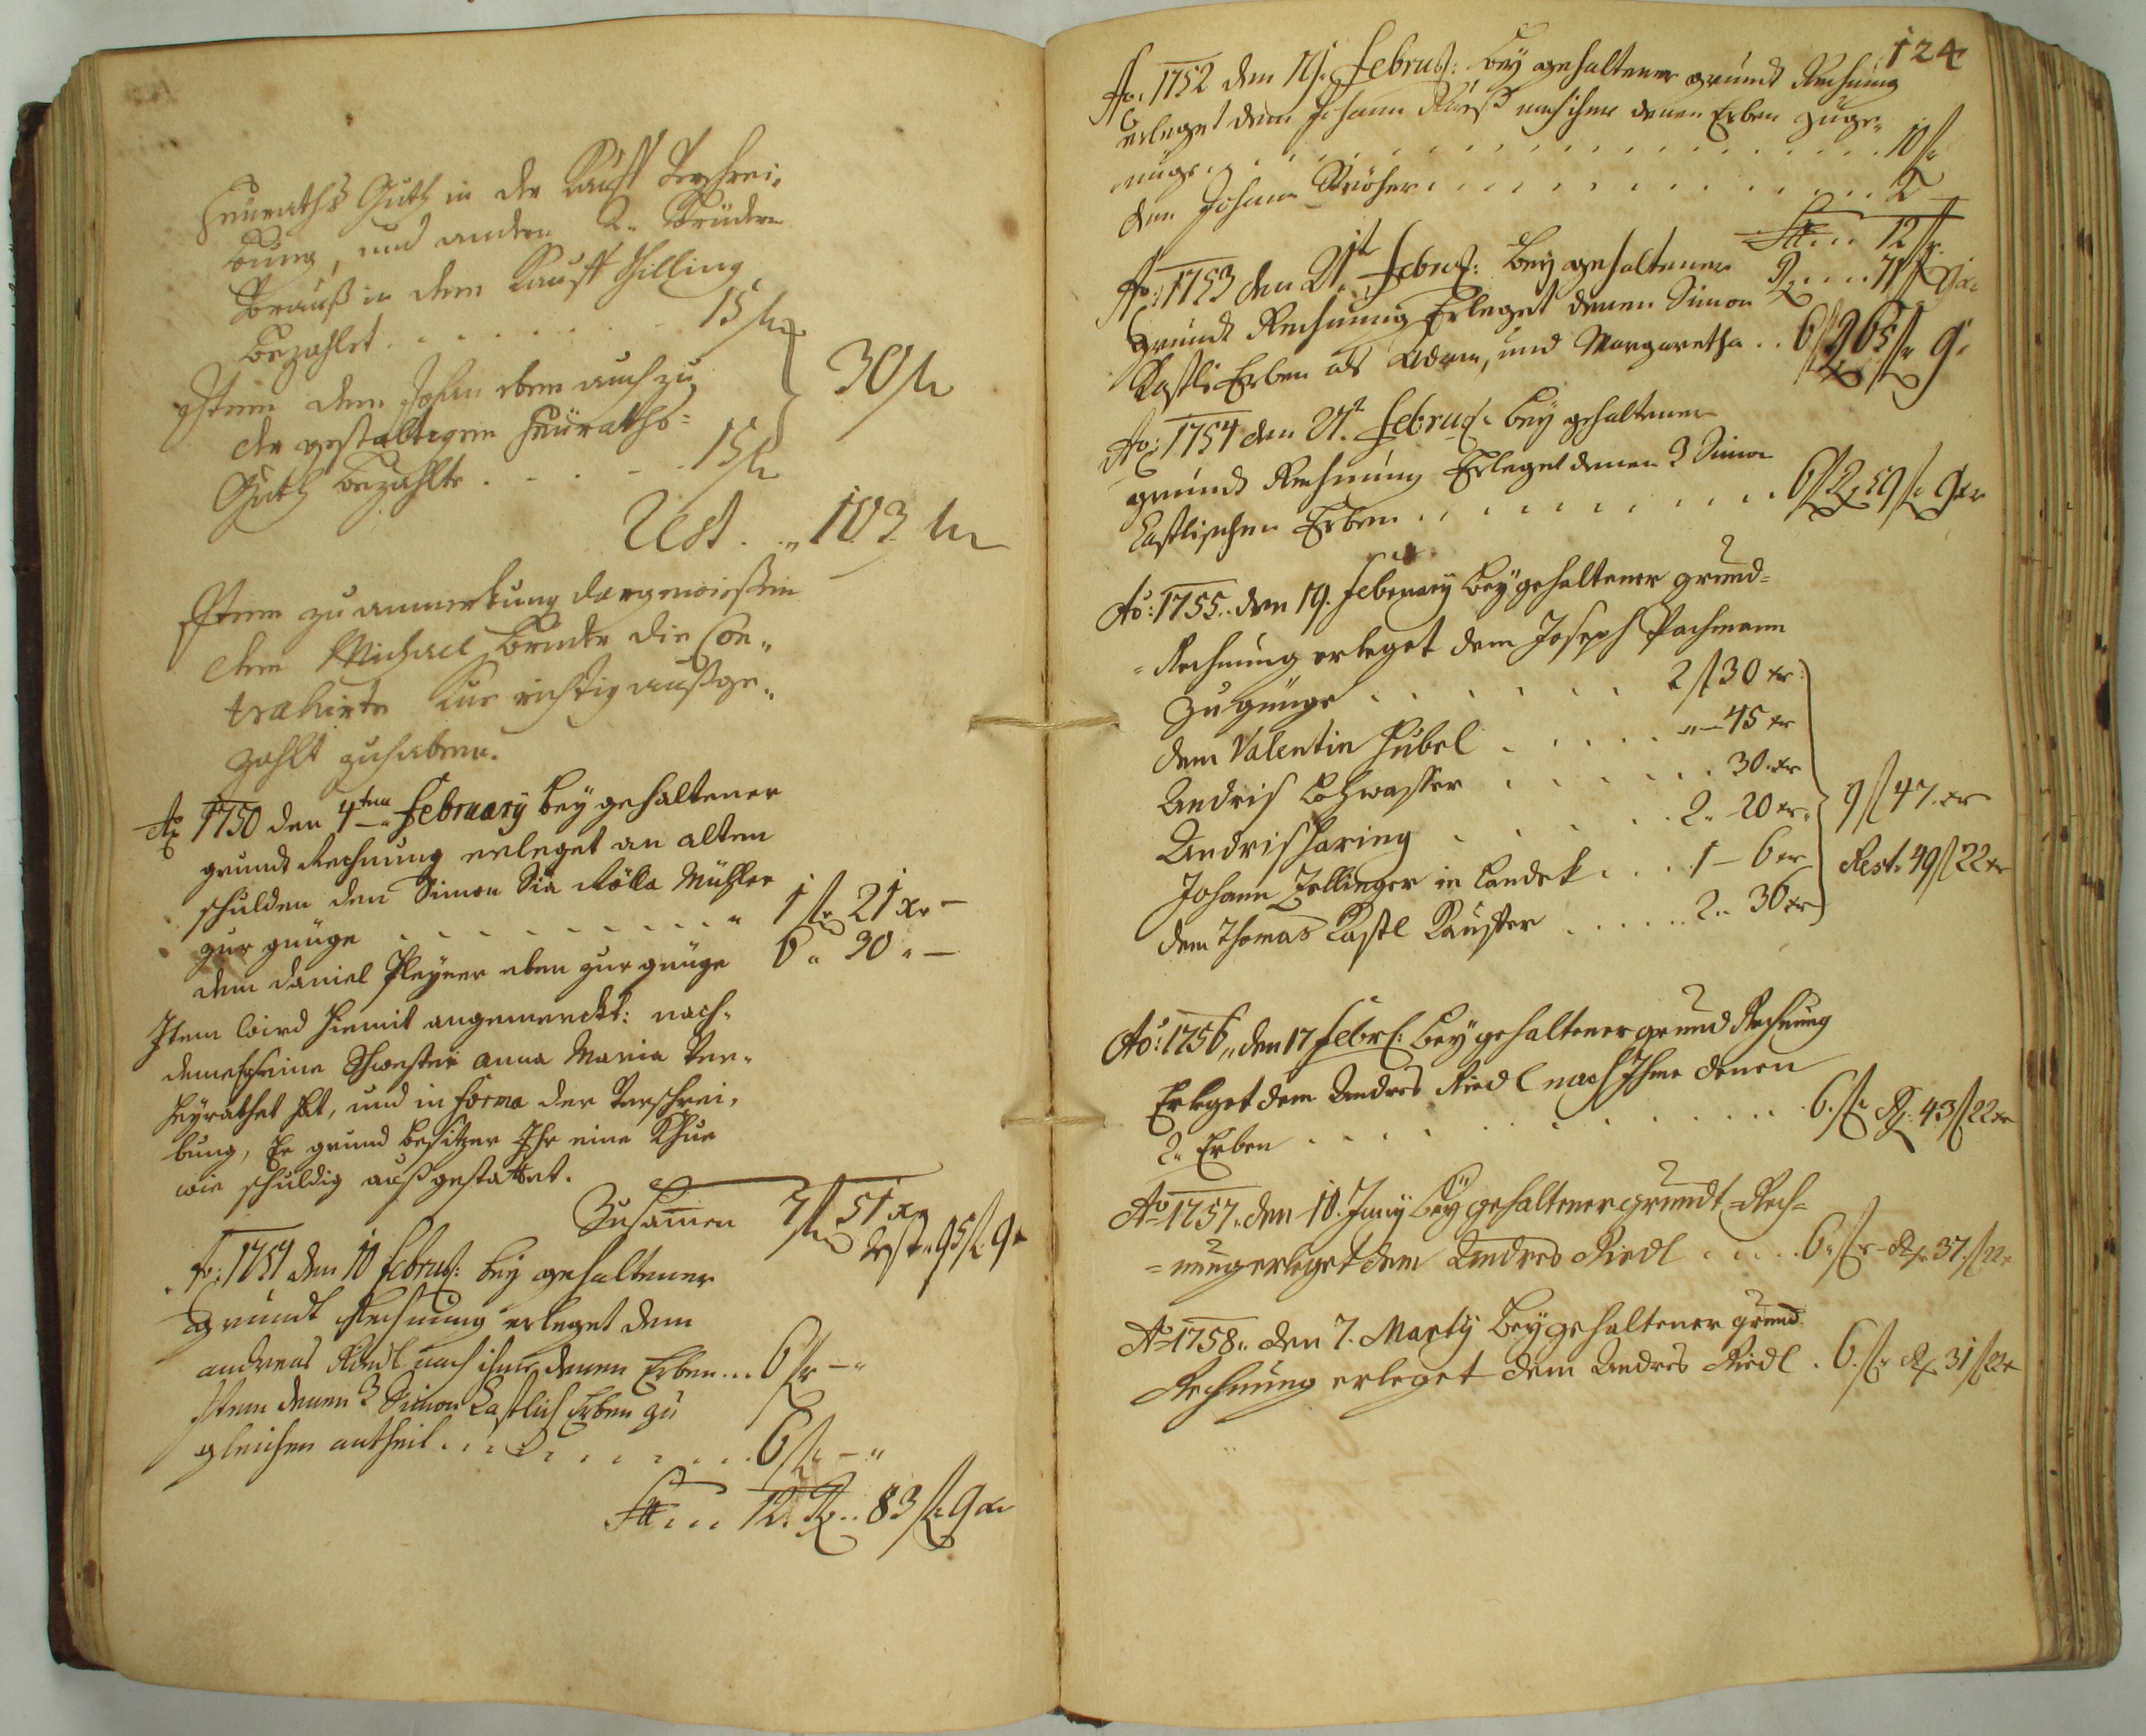 Heuraths Guth in der Kauff Verschrei,
bung, und andern 2. Brüdern
Vorauß in dem Kauff Schilling
bezahlet . . . . . . . 15 fl
Item dem Johan eben auch zu
der gestaltigem Heüraths=
Guth bezahlte . . . . . 15 fl
30 fl
Rest . . 103 fl
Item zu anmerkung
dem Michael Bruder die Con„
trahirte Kue richtig außge„
zahlt zuhaben.
Ao 1750 den 4ten February bey gehaltener
grundt Rechnung erleget an alten
schulden dem Simon Mühler
zur gnüge . . . . . . . . . . 1 fl 21 xr —
dem Daniel Pleyner eben zur gnüge 6 „ 30 „ —
Item wird hiemit angemerckt: nach„
deme seine Schwester Anna Maria Ver„
heyrathet hat, und in forma der Verschrei„
bung, Er grund besitzer Ihr eine Khue
wie schuldig außgestattet.
Zusamen 7 fl 51 xr
Rest. 95 fl. 9 x
Ao: 1751 den 10 Febru: bey gehaltener
grundt Rechnung erleget dem
Andreas Riedl nach ihme denen Erben . . . 6 fl — „
Item denen 3 Simon Kastlisch Erben zu
gleichen antheil . . . . . . . . . 6 fl — „
. . . 12. R. . . 83 fl 9 xr
124
Ao. 1752 den 19. Febru: bey gehaltener grundt Rechnung
erleget dem Johann nach ihme denen Erben zuge„
nüge . . . . . . . . . . . . . . . . . . 10 fl
dem Johann . . . . . . . . . . . . . 2 —
. . . 12 fl
R . . . 71 fl 9 x
Ao: 1753 den 21t Febru: bey gehaltener
grundt Rechnung Erleget denen Simon
Kastli Erben als Adam, und Margaretha . . 6 fl R 65 fl 9
Ao: 1754 den 21t Febru: bey gehaltener
grundt Rechnung Erleget denen 3 Simon
Kastlischen Erben . . . . . . . . . . . . 6 fl R 59 fl 9 xr
Ao: 1755. den 19. February bey gehaltener grund=
=Rechnung erleget dem Joseph Pachmann
zu gnüge . . . . . . . 2 fl 30 xr
dem Valentin Hübel . . . . . „ — 45 xr
Andris Lohwasser . . . . . . . 30. xr
Andris Haring . . . . . . . 2 „ 20 xr
Johann Zettlinger in Landek . . . 1 — 6 xr
dem Thomas Kastl Käuffer . . . . . 2 „ 36 xr
9 fl 47. xr
Rest. 49 fl 22 xr
Ao: 1756 „ den 17 Febr: bey gehaltener grund Rechnung
Erleget dem Andres Riedl nach Ihme denen
2. Erben . . . . . . . . . . . . . . 6. fl R. 43 fl 22 xr
Ao 1757. den 10. Juny bey gehaltener grundt Rech=
=nung erleget dem Andres Riedl . . . . 6 „ fl R. 37. fl 22
Ao 1758 „ den 7. Marty bey gehaltener grund
Rechnung erleget dem Andres Riedl . 6. fl R 31 fl 22 x